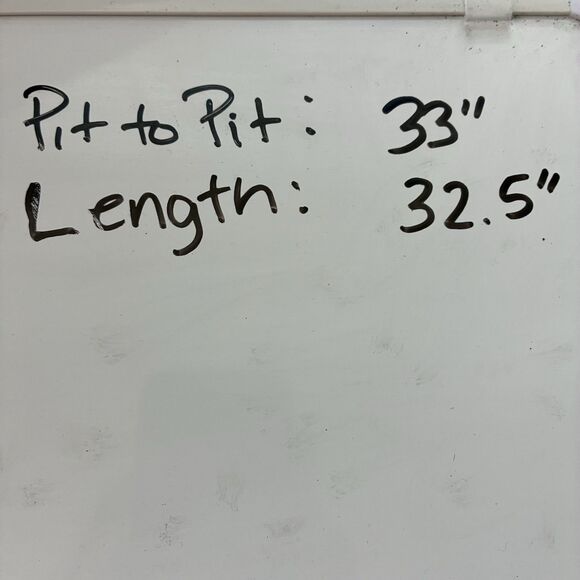 Pit to Pit: 33"
Length: 32.5"